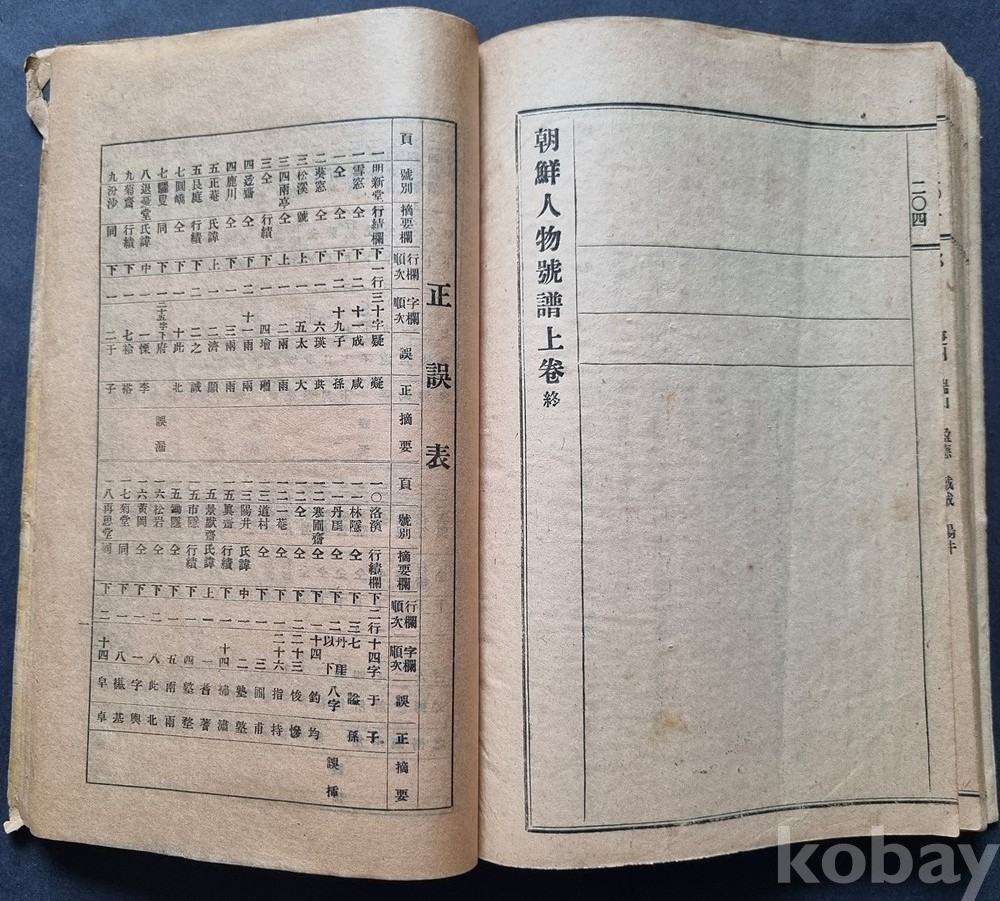 二〇四
朝鮮人物號譜上卷 終
正誤表
頁 號別 摘要欄 行欄順次 字欄順次 誤 正 摘要
一 明新堂 行績欄 下 一行 三十字 疑
一 雪窓 仝 下 二 十一 成 咸
一 仝 仝 下 二 十九 子 孫
二 葵窓 仝 下 一 六 瑛 珙
三 松溪 號 上 一 五 太 大
三 四雨亭 仝 上 一 二 兩 雨
三 仝 行績 下 一 四 增 贈
四 齋 仝 下 二 十一 雨 兩
四 鹿川 仝 下 一 三 兩 雨
五 正菴 氏諱 上 一 二 濟 顯
五 艮庭 行績 下 二 二 之 誠
七 圓嶠 仝 下 一 十 此 北
七 叟 同 下 一 二十五字下 府 誤漏
八 退憂堂 氏諱 中 一 一 慄 李
九 菊齋 行績 下 一 七 拾 裕
九 汾沙 同 下 一 二 于 子
頁 號別 摘要欄 行欄順次 字欄順次 誤 正 摘要
一〇 洛濱 行績欄 下 二行 十四字 于 子
一一 林隱 仝 下 三 七 謚 孫
一一 丹崖 仝 下 二 丹崖以下 八字 誤揷
一二 寒圃齋 仝 下 一 十四 鈞 均
一二 仝 仝 下 二 二十三 悛 慘
一二 一菴 仝 下 一 二十六 指 持
一三 道村 仝 下 一 三 圃 甫
一三 陽井 氏諱 中 一 二 塾
一五 眞齋 行績 下 一 十四 浦 潚
一五 景默齋 氏諱 上 一 一 著
一五 市隱 行績 下 一 四
一五 鋤隱 仝 下 一 五 兩 雨
一六 松岩 仝 下 二 八 此 北
一六 黃岡 仝 下 一 一 字 輿
一七 菊堂 同 下 一 八 基
一八 再思堂 同 下 二 十四 皐 卓
kobay